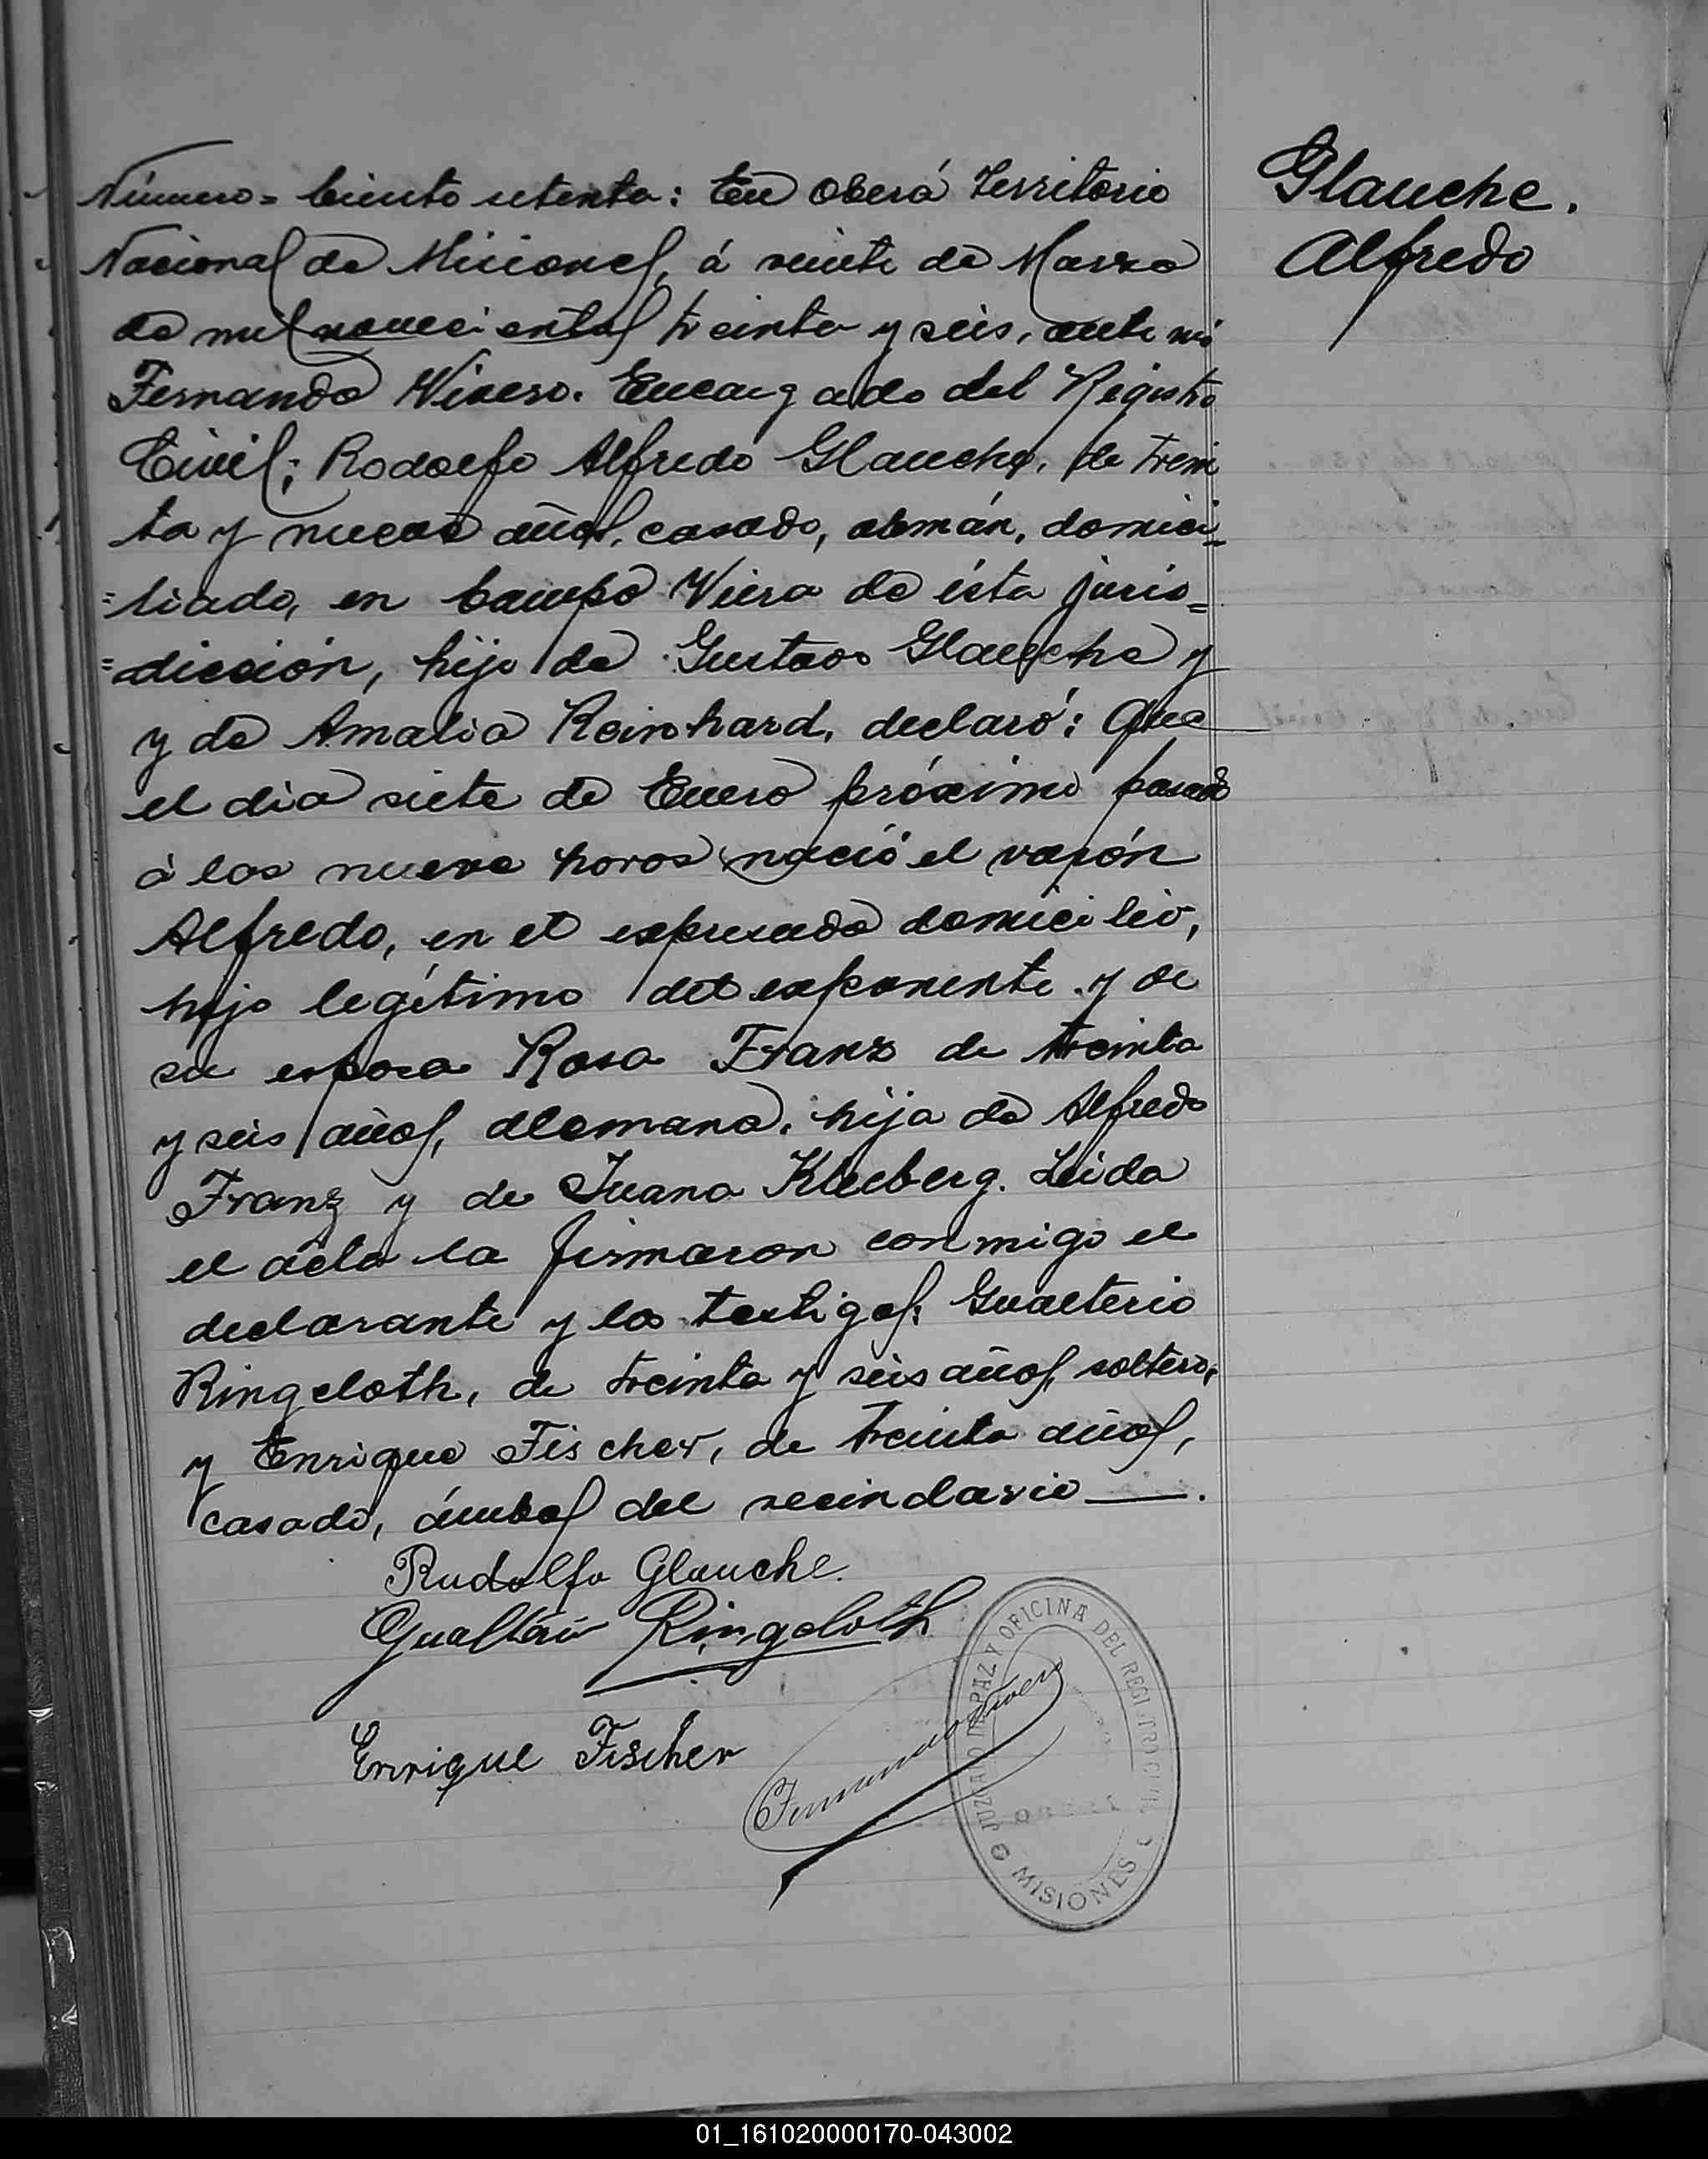 Glauche.
Alfredo
Número = Ciento setenta: En Oberá Territorio
Nacional de Misiones, á veinte de Marzo
de mil novecientos treinta y seis, ante mí
Fernando Vivero. Encargado del Registro
Civil; Rodolfo Alfredo Glauche, de trein
ta y nueve años, casado, alemán, domici=
=liado, en Campo Viera de ésta juris=
=dicción, hijo de Gustavo Glauche y
y de Amalia Reinhard, declaró: Que
el dia siete de Enero próximo pasado
á las nueve horas nació el varón
Alfredo, en el expresado domicilio,
hijo legítimo del exponente y de
su esposa Rosa Franz de treinta
y seis años, alemana, hija de Alfredo
Franz y de Juana Kleeberg. Leida
el acta la firmaron conmigo el
declarante y los testigos: Gualterio
Ringeloth, de treinta y seis años, soltero,
y Enrique Fischer, de treinta años,
casado, ámbos del vecindario ——.
Rudolfo Glauche.
Gualterio Ringeloth
Enrique Fischer
Fernando Vivero
JUZGADO DE PAZ Y OFICINA DEL REGISTRO CIVIL
MISIONES
01_161020000170-043002